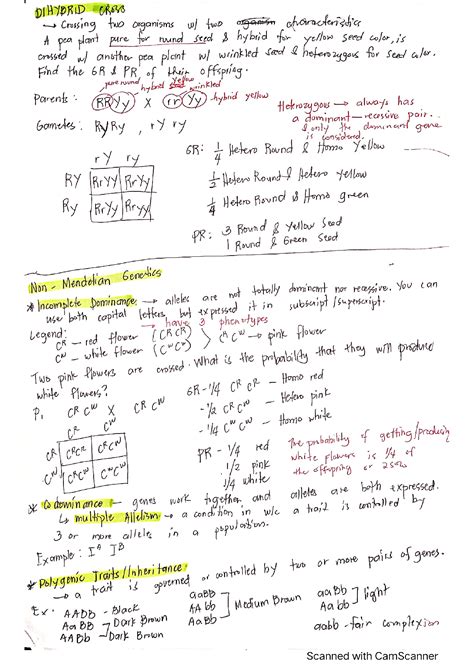 DIHYBRID CROSS
→ Crossing two organisms w/ two characteristics
A pea plant pure for round seed & hybrid for yellow seed color, is
crossed w/ another pea plant w/ wrinkled seed & heterozygous for seed color.
Find the GR & PR of their offspring.
pure round hybrid yellow wrinkled
Parents: RRYy X rrYy hybrid yellow
Heterozygous → always has
a dominant - recessive pair..
& only the dominant gene
is considered.
Gametes: RY Ry , rY ry
rY ry
RY RrYY RrYy
Ry RrYy Rryy
GR: 1/4 Hetero Round & Homo Yellow
1/2 Hetero Round & Hetero yellow
1/4 Hetero Round & Homo green
PR: 3 Round & Yellow Seed
1 Round & Green Seed
Non - Mendelian Genetics
* Incomplete Dominance → alleles are not totally dominant nor recessive. You can
use both capital letters, but expressed it in subscript/superscript.
→ have 3 phenotypes
Legend:
Cᴿ - red flower (CᴿCᴿ)
Cᵂ - white flower (CᵂCᵂ)
CᴿCᵂ → pink flower
Two pink flowers are crossed. What is the probability that they will produce
white flowers?
P₁ Cᴿ Cᵂ X Cᴿ Cᵂ
Cᴿ Cᵂ
Cᴿ CᴿCᴿ CᴿCᵂ
Cᵂ CᴿCᵂ CᵂCᵂ
GR - 1/4 Cᴿ Cᴿ - Homo red
- 1/2 Cᴿ Cᵂ - Hetero pink
- 1/4 Cᵂ Cᵂ - Homo white
PR - 1/4 red
1/2 pink
1/4 white
The probability of getting/producing
white flowers is 1/4 of
the offspring or 25%
* Codominance - genes work together and alleles are both expressed.
↳ multiple Allelism → a condition in w/c a trait is controlled by
3 or more alleles in a population.
Example: Iᴬ Iᴮ
* Polygenic Traits/Inheritance
→ a trait is governed or controlled by two or more pairs of genes.
Ex: AABB - Black
AABb
AaBB
Dark Brown
AABb
Dark Brown
aaBB
AAbb
AaBb
Medium Brown
aaBb
Aabb
light
aabb - fair complexion
Scanned with CamScanner